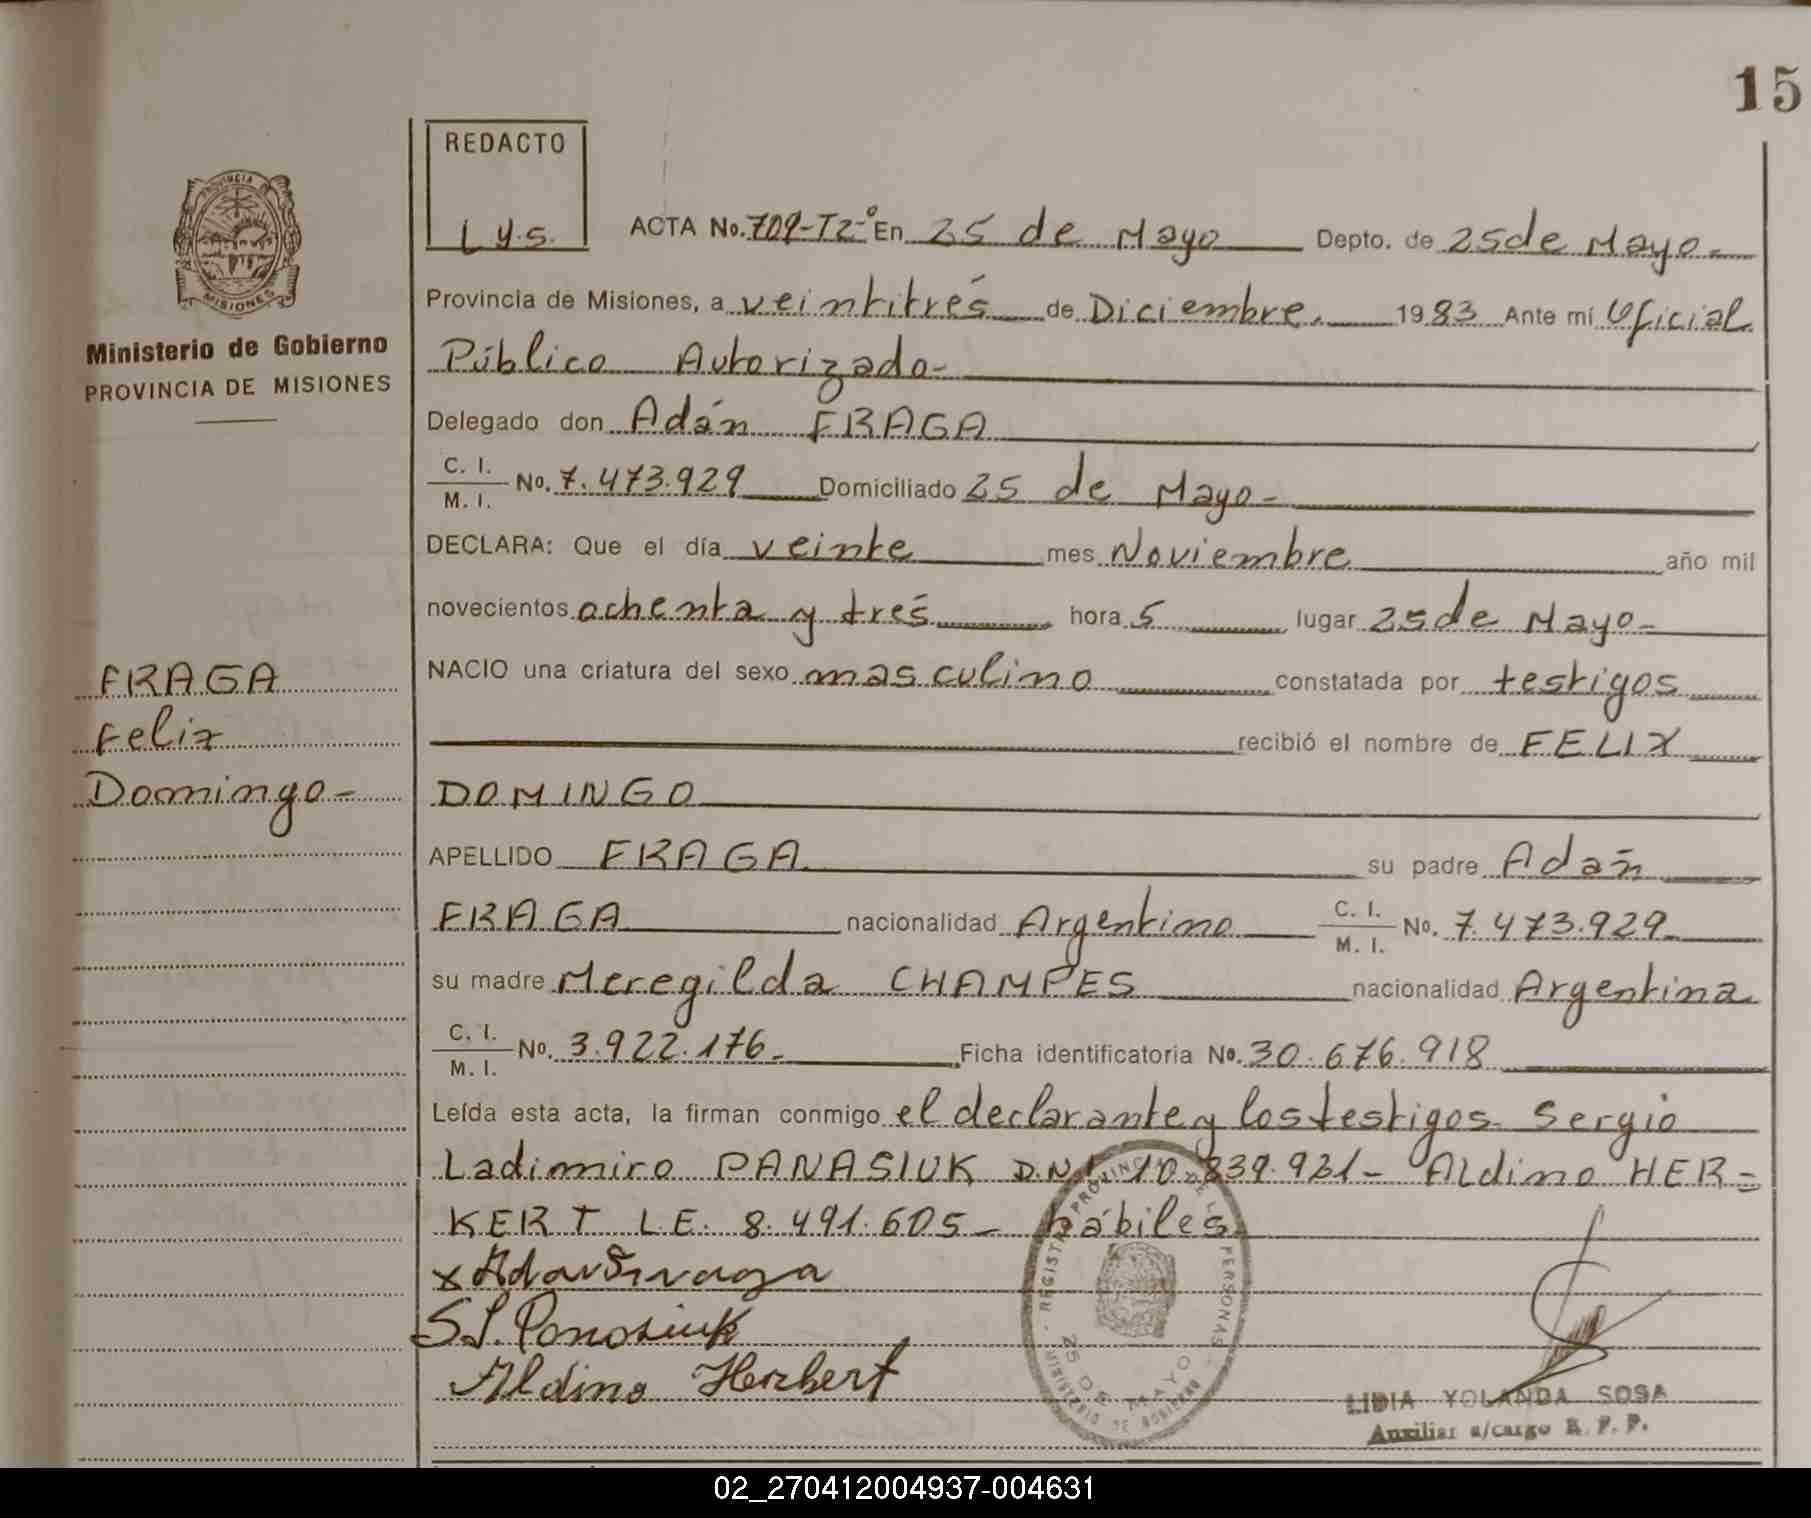 15
REDACTO
L y.s.
PROVINCIA DE
MISIONES
Ministerio de Gobierno
PROVINCIA DE MISIONES
ACTA No. 709-T2-º En 25 de Mayo Depto. de 25 de Mayo-
Provincia de Misiones, a veintitrés de Diciembre. 1983 Ante mí Oficial
Público Autorizado-
Delegado don Adán FRAGA
C. I.
M. I. No. 7.473.929 Domiciliado 25 de Mayo-
DECLARA: Que el día veinte mes Noviembre año mil
novecientos ochenta y tres hora 5 lugar 25 de Mayo-
FRAGA
Felix
Domingo-
NACIO una criatura del sexo masculino constatada por testigos
recibió el nombre de FELIX
DOMINGO
APELLIDO FRAGA su padre Adán
FRAGA nacionalidad Argentino C. I. M. I. No. 7.473.929-
su madre Meregilda CHAMPES nacionalidad Argentina
C. I.
M. I. No. 3.922.176- Ficha identificatoria No. 30.676.918
Leída esta acta, la firman conmigo el declarante y los testigos Sergio
Ladimiro PANASIUK D.N.I 10.839.931- Aldino HER=
KERT L.E. 8.491.605- hábiles.
x Adan Fraga
S.L. Panasiuk
Aldino Herkert
REGISTRO PROVINCIAL DE LAS PERSONAS
25 DE MAYO
MINISTERIO DE GOBIERNO
LIDIA YOLANDA SOSA
Auxiliar a/cargo R. P. P.
02_270412004937-004631